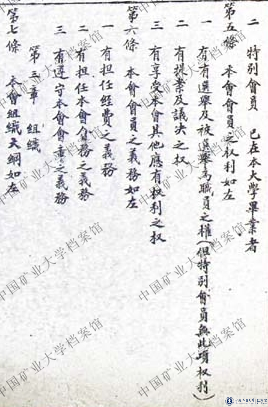 二 特別會員 已在本大學畢業者
第五條 本會會員之权利如左
一 有選舉及被選舉為職員之權(但特別會員無此項权利)
二 有提案及議决之权
三 有享受本會其他應有权利之权
第六條 本會會員之義務如左
一 有担任經費之義務
二 有担任本會會務之義務
三 有遵守本會會章之義務
第三章 組織
第七條 本會組織大綱如左
中国矿业大学档案馆
中国矿业大学档案馆
中国矿业大学档案馆
中国矿业大学档案馆